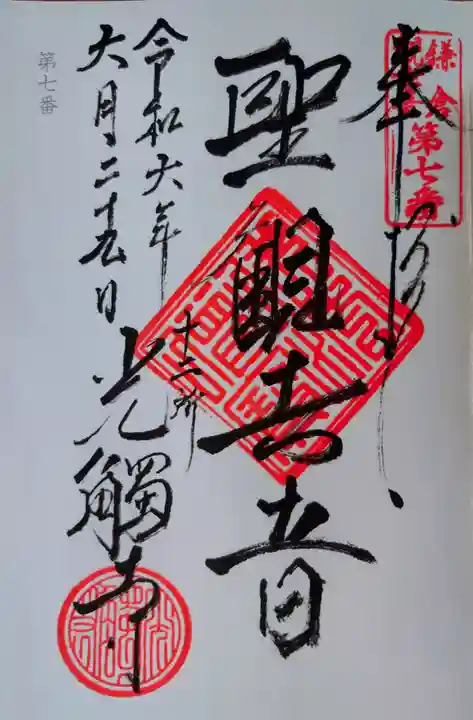 鎌倉
観音
第七番
奉
聖観世音
十二所
光觸寺
令和六年
六月二十五日
第七番